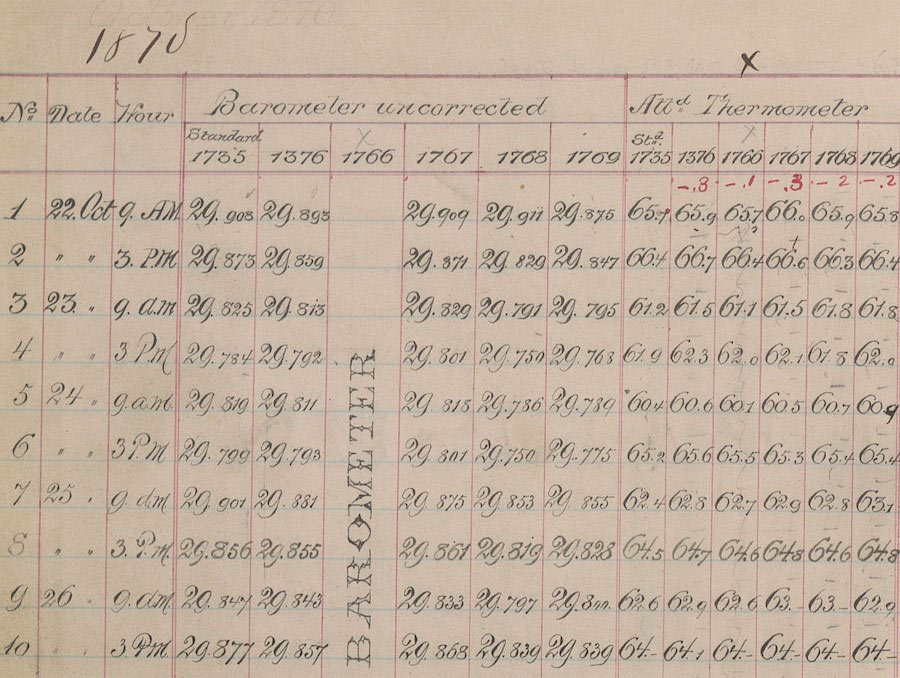 October 1870
1870
x
No. Date Hour Barometer uncorrected Attd. Thermometer
Standard 1735 1376 1766 1767 1768 1769 Std. 1735 1376 1766 1767 1768 1769
-.8 -.1 -.3 -2 -.2
1 22. Oct 9. AM 29.903 29.893 29.909 29.911 29.875 65.7 65.9 65.7 66.0 65.9 65.8
2 " " 3. PM 29.873 29.859 29.871 29.829 29.847 66.4 66.7 66.4 66.6 66.3 66.4
3 23. " 9. a.m 29.825 29.813 29.829 29.791 29.795 61.2 61.5 61.1 61.5 61.8 61.8
4 " " 3 P.m 29.784 29.792 29.801 29.750 29.763 61.9 62.3 62.0 62.1 61.8 62.0
5 24 " 9. a.m 29.819 29.811 29.818 29.786 29.789 60.4 60.6 60.1 60.5 60.7 60.9
6 " " 3 P.M 29.799 29.793 29.801 29.750 29.775 65.2 65.6 65.5 65.3 65.4 65.4
7 25 " 9. am 29.901 29.881 29.875 29.853 29.855 62.4 62.8 62.7 62.9 62.8 63.1
8 " " 3. P.m. 29.856 29.855 29.861 29.819 29.828 64.5 64.7 64.6 64.8 64.6 64.8
9 26 " 9. am 29.847 29.843 29.833 29.797 62.6 62.9 62.6 63.- 63.- 62.9
10 " " 3 P.M. 29.877 29.857 29.868 29.839 29.839 64.- 64.1 64.- 64.- 64.- 64.-
BAROMETER